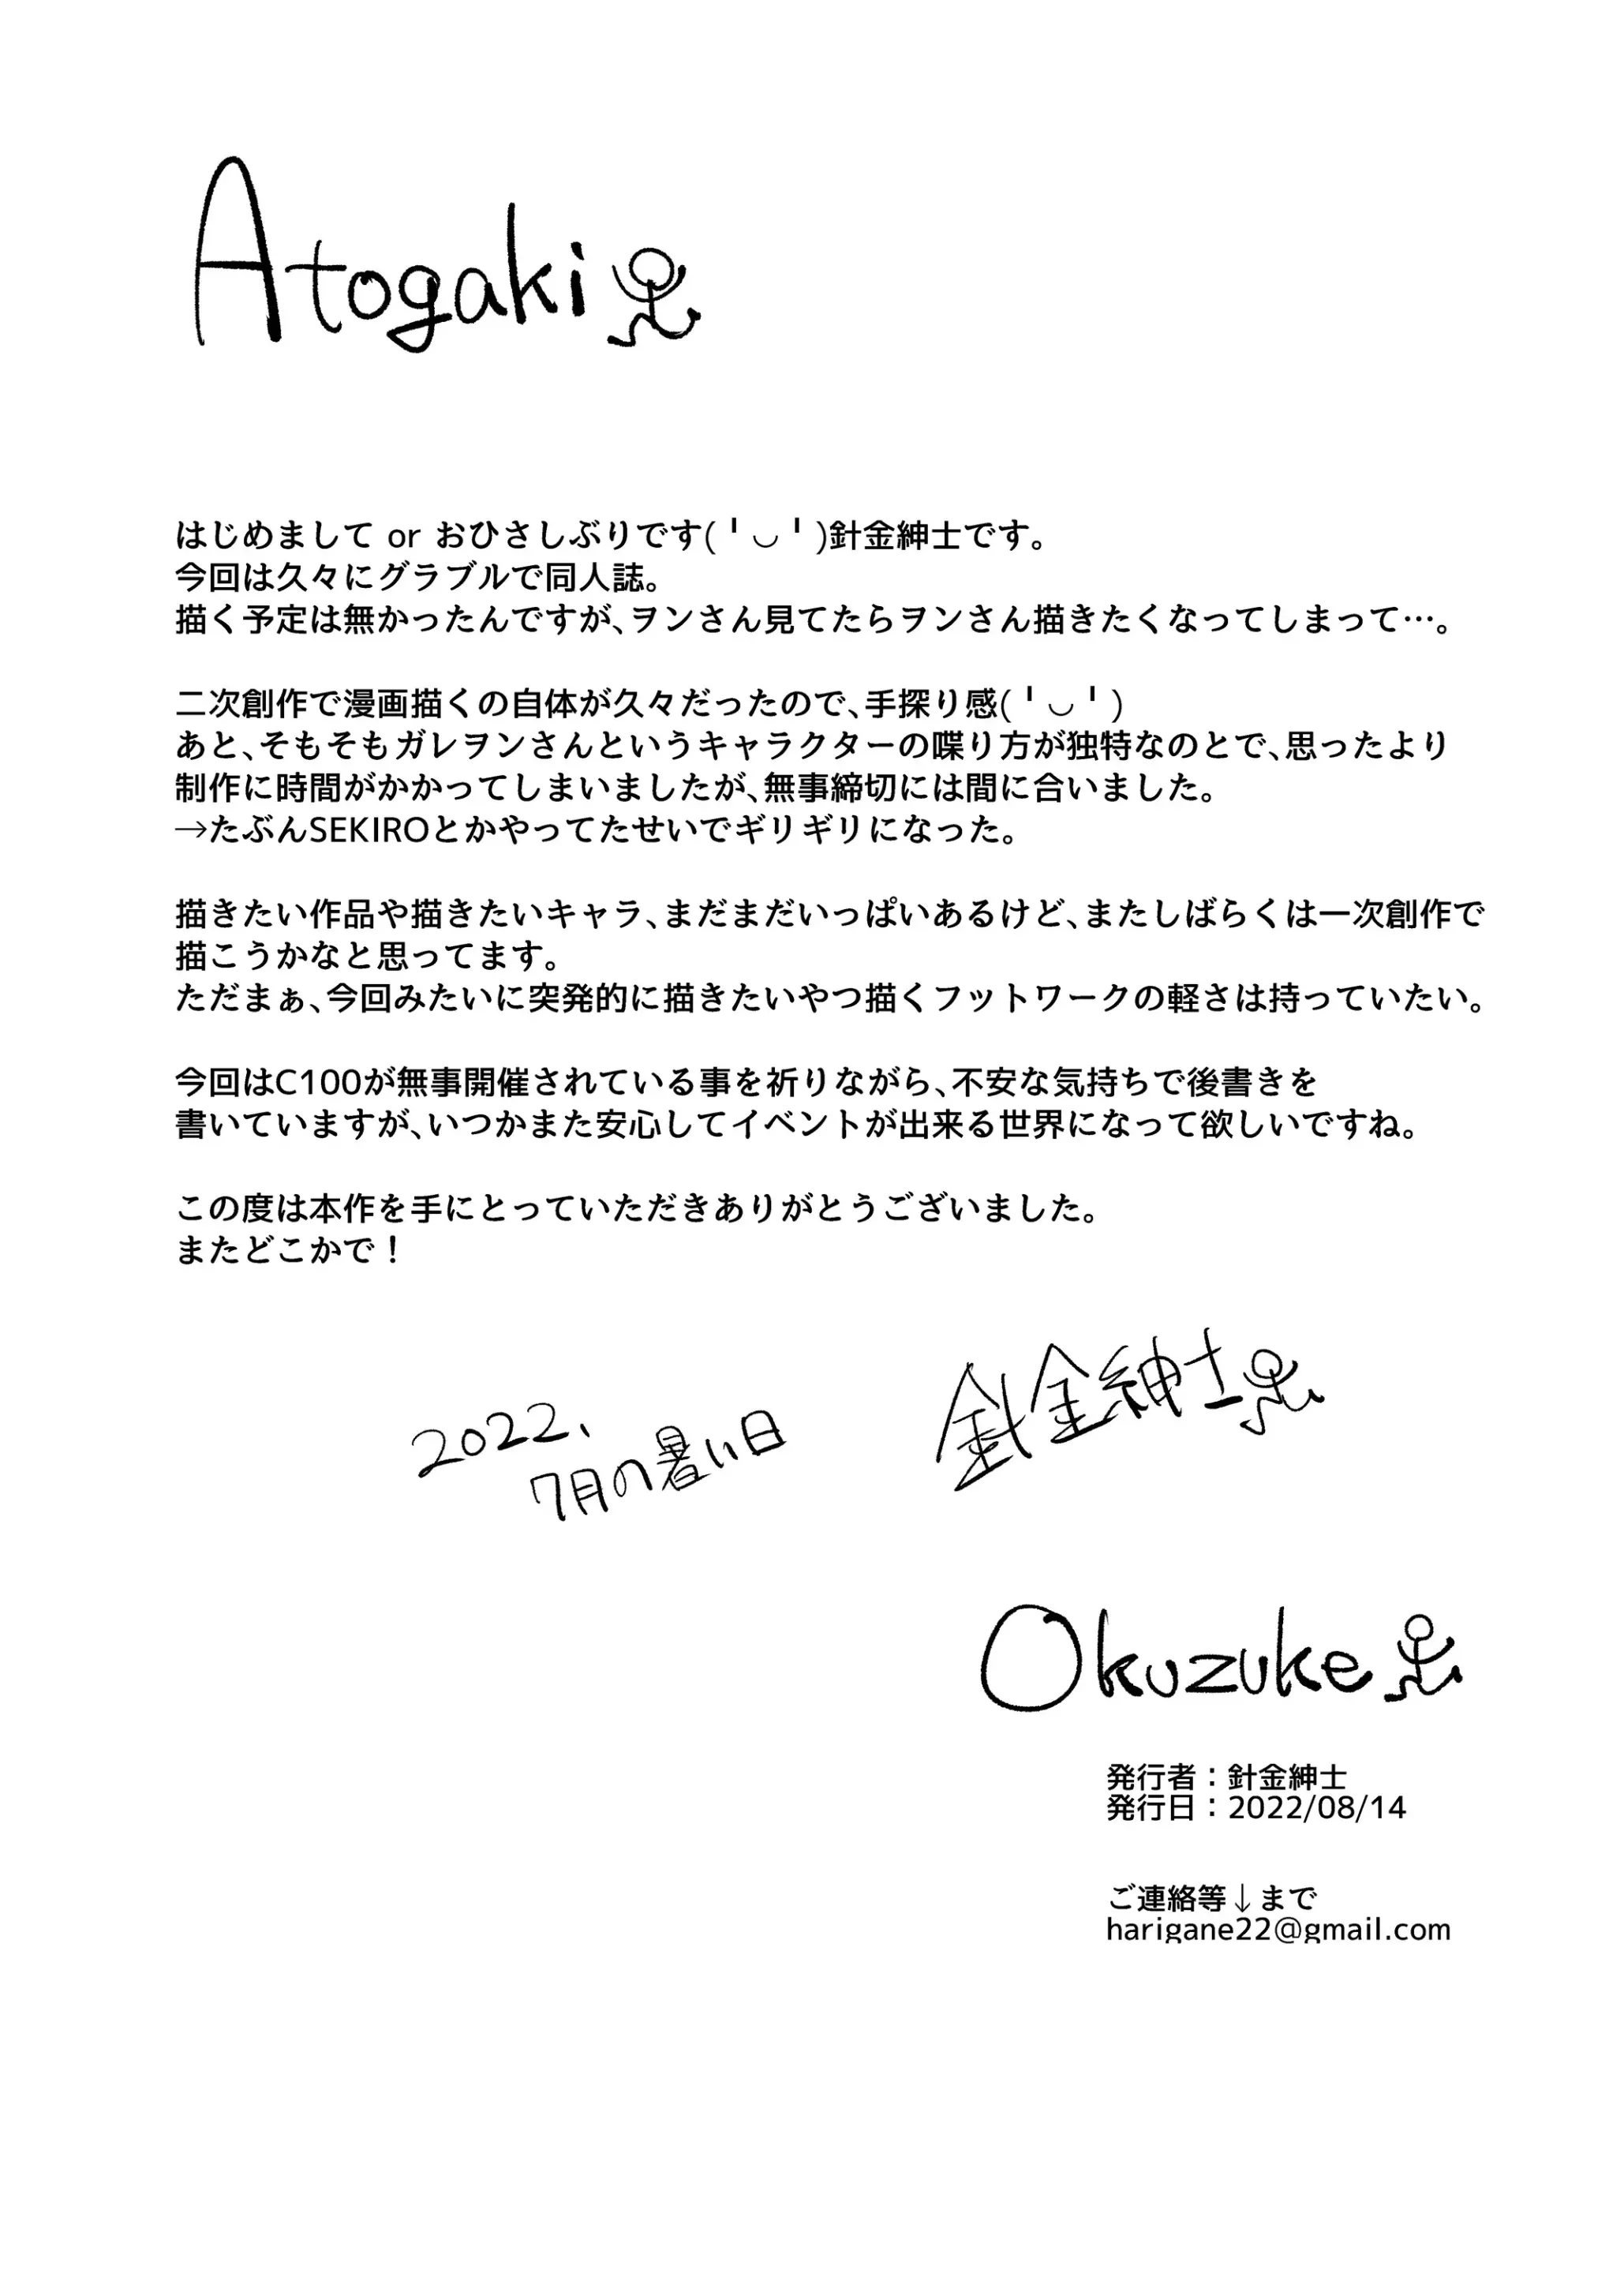 Atogaki
はじめまして or おひさしぶりです(╹◡╹)針金紳士です。
今回は久々にグラブルで同人誌。
描く予定は無かったんですが、ヲンさん見てたらヲンさん描きたくなってしまって…。
二次創作で漫画描くの自体が久々だったので、手探り感(╹◡╹)
あと、そもそもガレヲンさんというキャラクターの喋り方が独特なのとで、思ったより
制作に時間がかかってしまいましたが、無事締切には間に合いました。
→たぶんSEKIROとかやってたせいでギリギリになった。
描きたい作品や描きたいキャラ、まだまだいっぱいあるけど、またしばらくは一次創作で
描こうかなと思ってます。
ただまぁ、今回みたいに突発的に描きたいやつ描くフットワークの軽さは持っていたい。
今回はC100が無事開催されている事を祈りながら、不安な気持ちで後書きを
書いていますが、いつかまた安心してイベントが出来る世界になって欲しいですね。
この度は本作を手にとっていただきありがとうございました。
またどこかで！
2022、
7月の暑い日
針金紳士
Okuzuke
発行者：針金紳士
発行日：2022/08/14
ご連絡等↓まで
harigane22@gmail.com